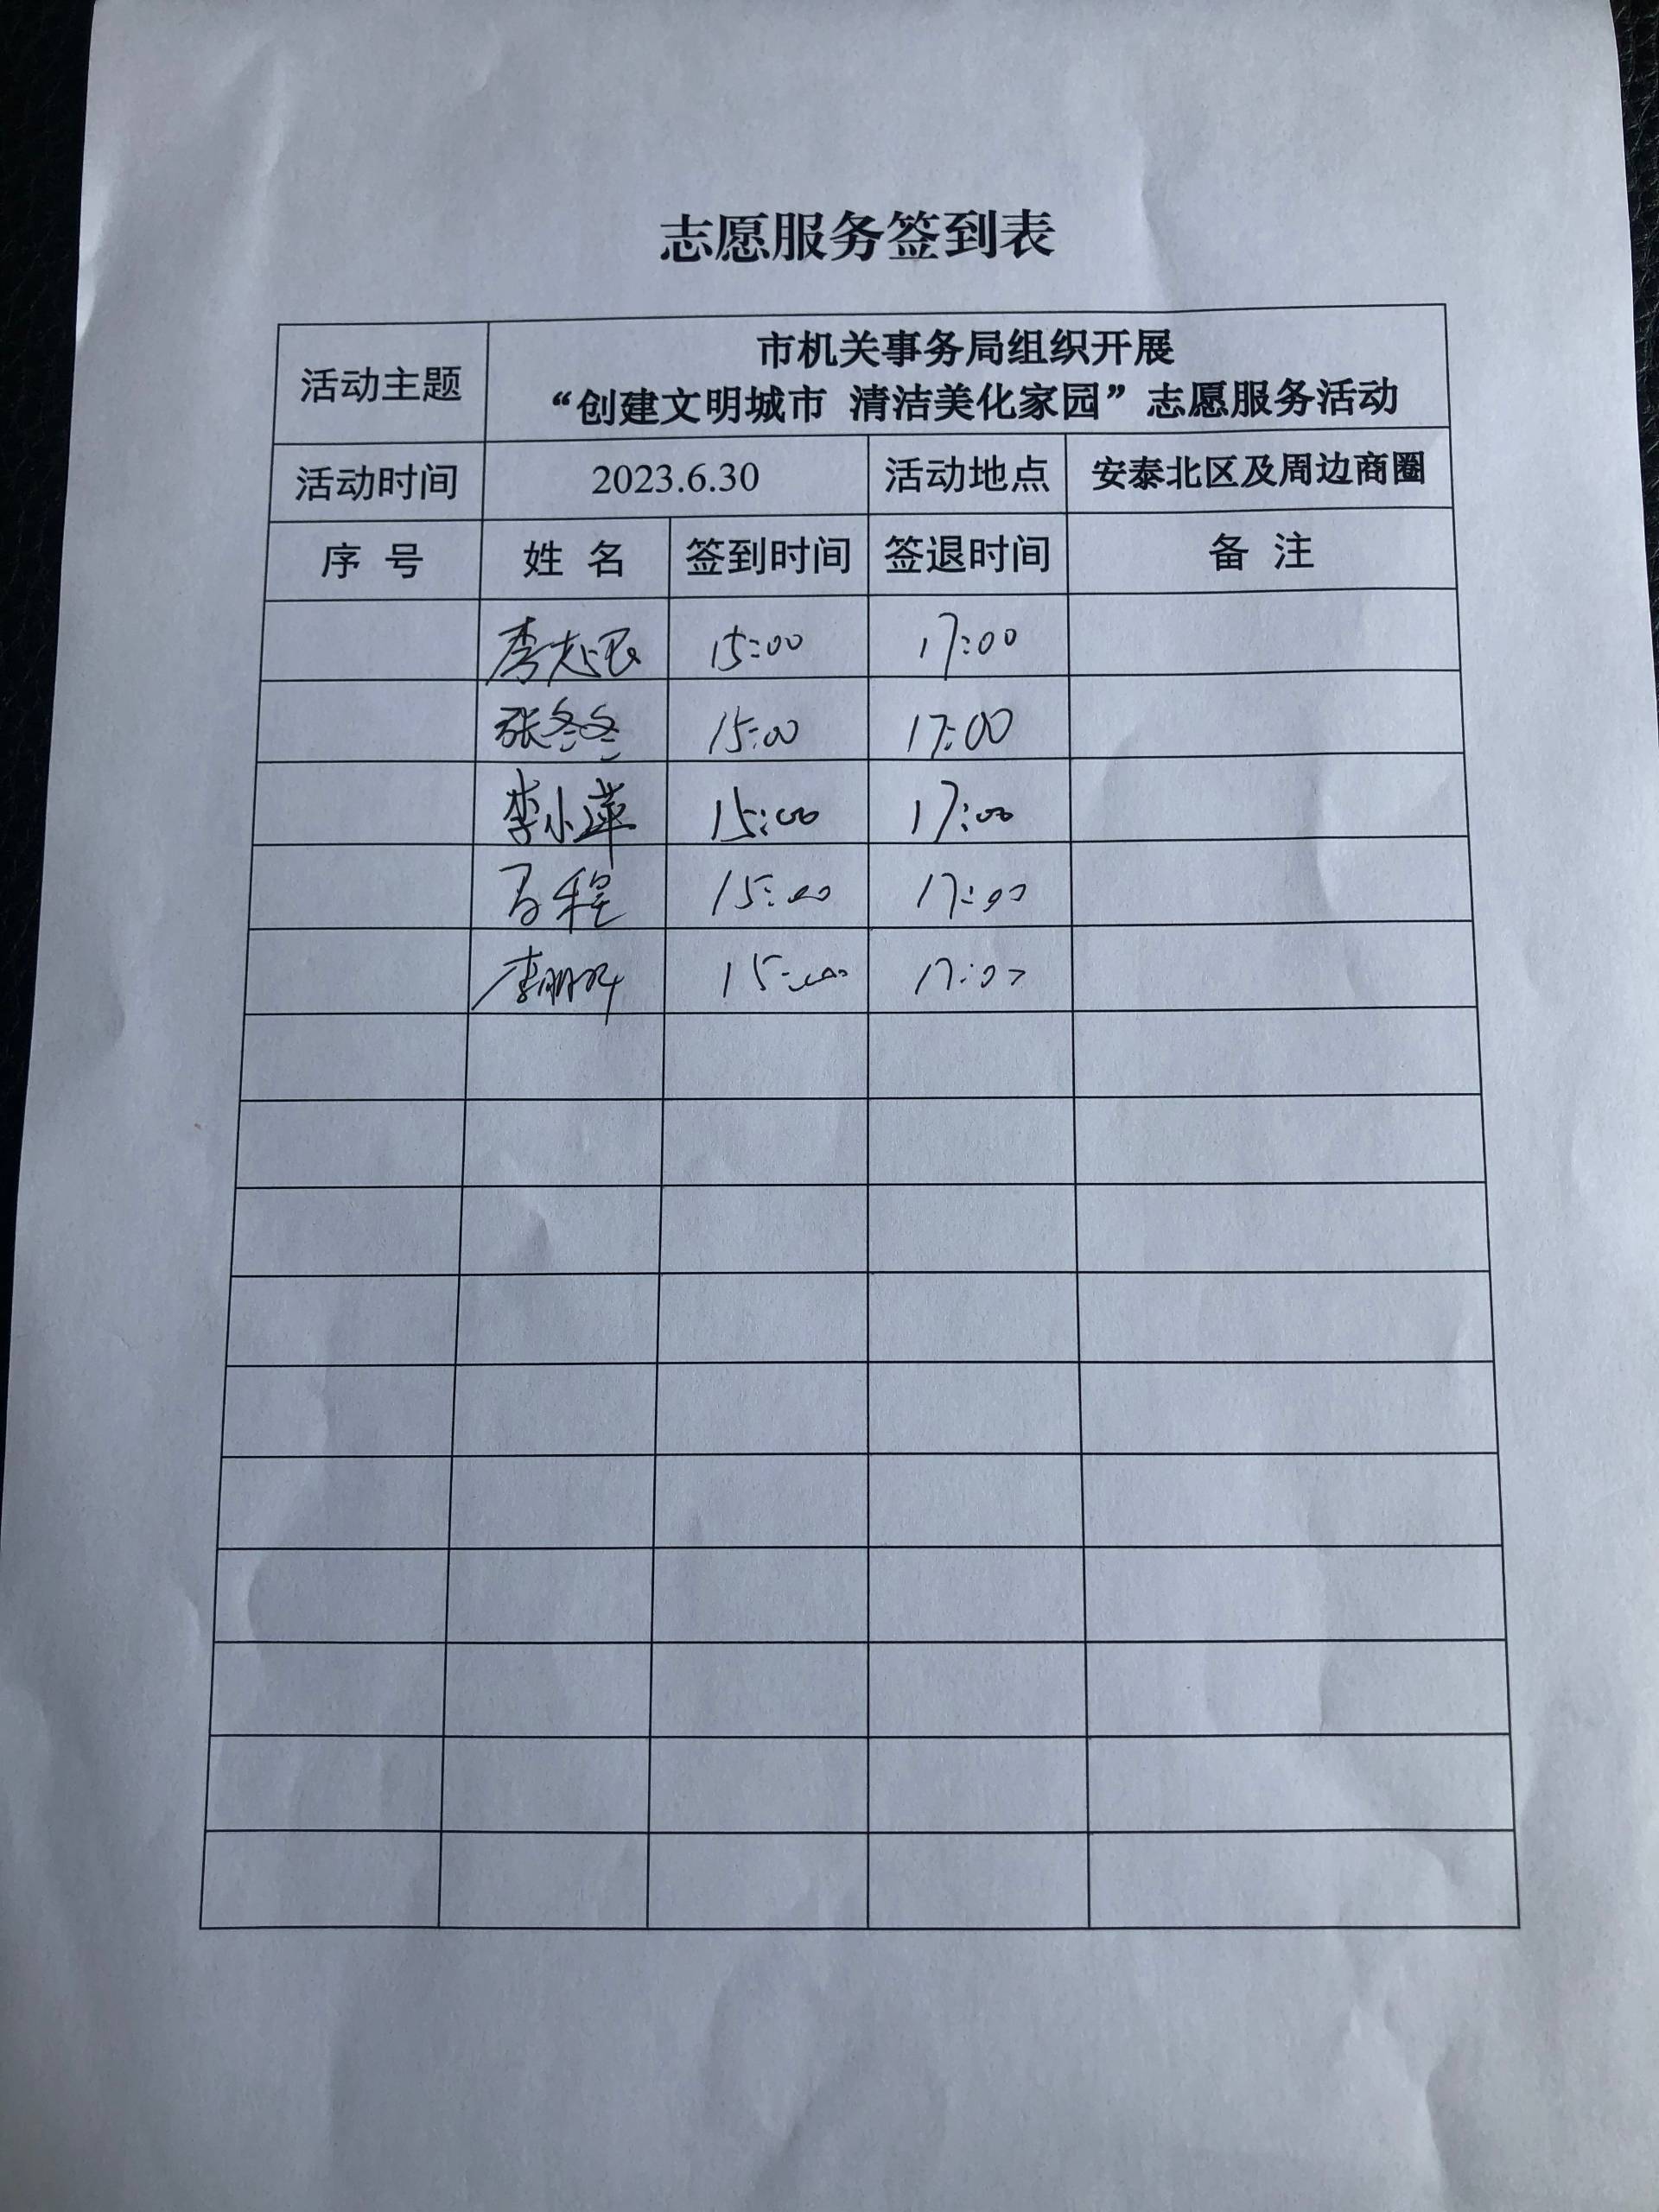 志愿服务签到表
活动主题
市机关事务局组织开展
“创建文明城市 清洁美化家园”志愿服务活动
活动时间 2023.6.30 活动地点 安泰北区及周边商圈
序 号 姓 名 签到时间 签退时间 备 注
李志民 15:00 17:00
张冬冬 15:00 17:00
李小萍 15:00 17:00
马程 15:00 17:00
李 15:00 17:00